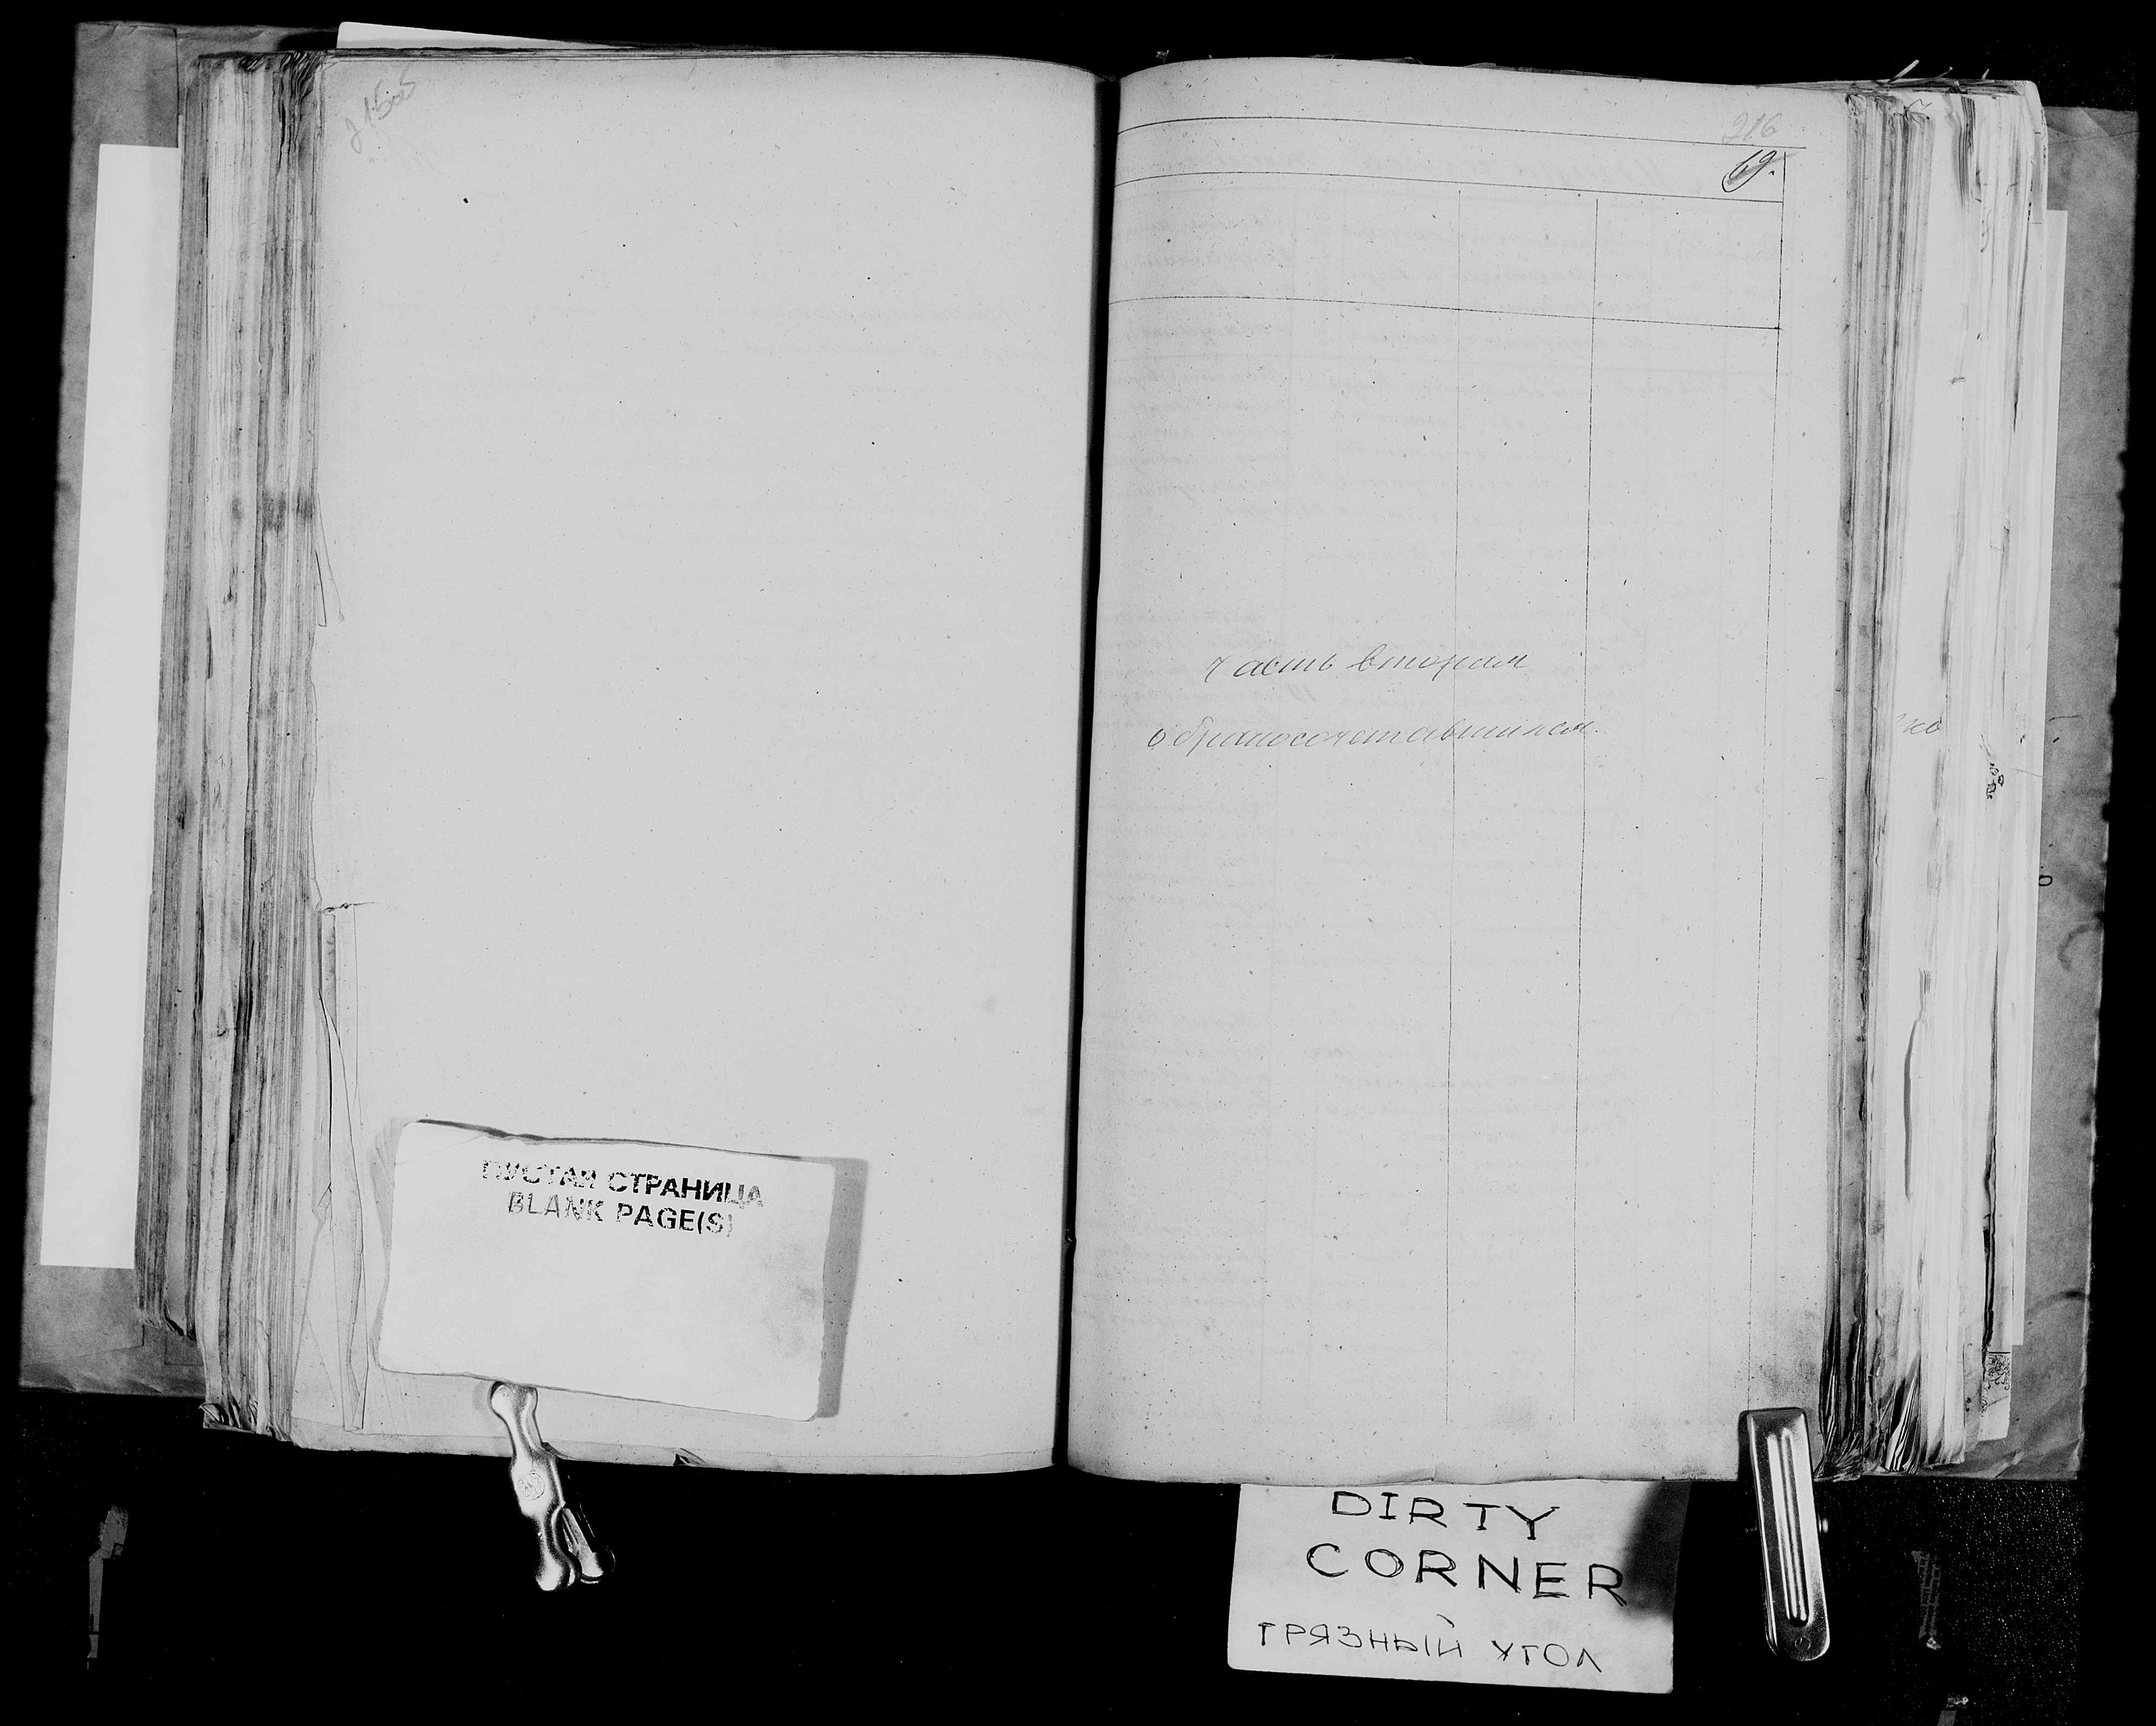 216
69.
часть вторая
о бракосочетавшихся.
ПУСТАЯ СТРАНИЦА
BLANK PAGE(S)
DIRTY
CORNER
ГРЯЗНЫЙ УГОЛ